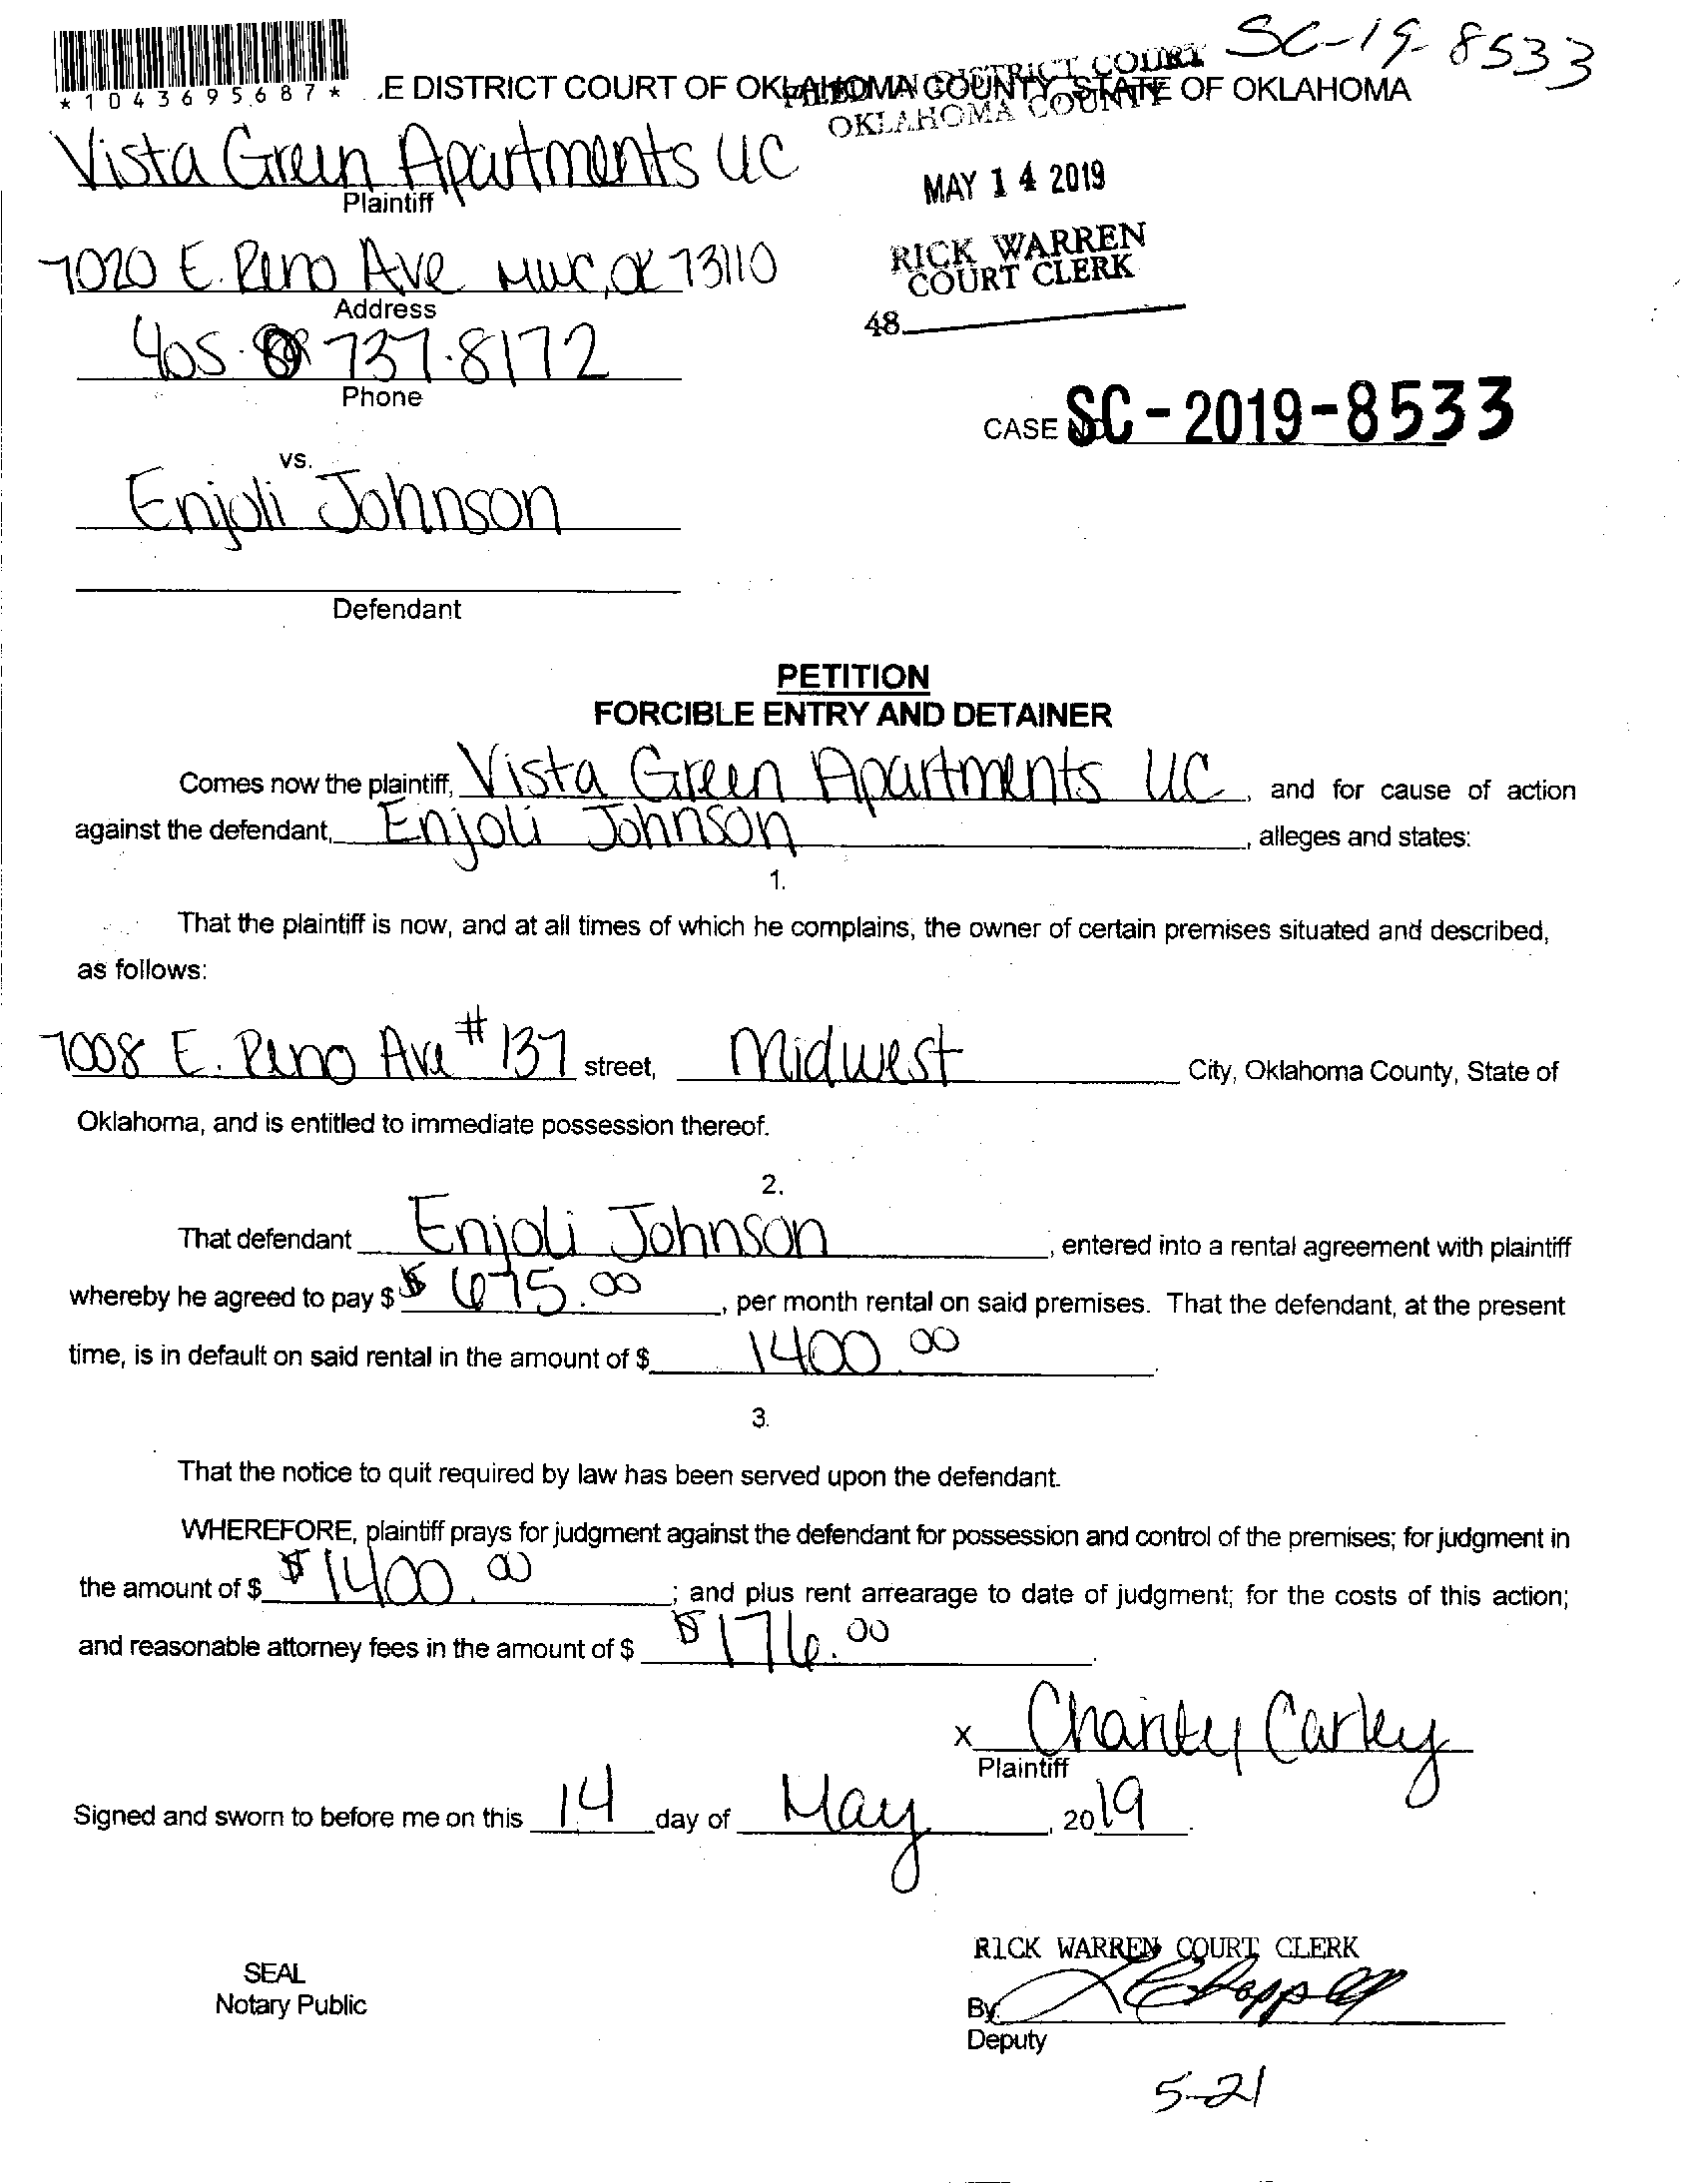 SC-19-8533
*1043695687*
.E DISTRICT COURT OF OKLAHOMA COUNTY, STATE OF OKLAHOMA
FILED IN DISTRICT COURT
OKLAHOMA COUNTY
MAY 14 2019
RICK WARREN
COURT CLERK
48
Vista Green Apartments LLC
Plaintiff
7020 E. Reno Ave MWC, OK 73110
Address
405. 737.8172
Phone
CASE NO. SC-2019-8533
vs.
Enjoli Johnson
Defendant
PETITION
FORCIBLE ENTRY AND DETAINER
Comes now the plaintiff, Vista Green Apartments LLC, and for cause of action
against the defendant, Enjoli Johnson, alleges and states:
1.
That the plaintiff is now, and at all times of which he complains, the owner of certain premises situated and described,
as follows:
7008 E. Reno Ave #137 street, Midwest City, Oklahoma County, State of
Oklahoma, and is entitled to immediate possession thereof.
2.
That defendant Enjoli Johnson, entered into a rental agreement with plaintiff
whereby he agreed to pay $ $ 675.00, per month rental on said premises. That the defendant, at the present
time, is in default on said rental in the amount of $ 1400.00.
3.
That the notice to quit required by law has been served upon the defendant.
WHEREFORE, plaintiff prays for judgment against the defendant for possession and control of the premises; for judgment in
the amount of $ $1400.00; and plus rent arrearage to date of judgment; for the costs of this action;
and reasonable attorney fees in the amount of $ $176.00.
X Charity Carley
Plaintiff
Signed and sworn to before me on this 14 day of May, 2019.
RICK WARREN COURT CLERK
SEAL
Notary Public
By
Deputy
5-21